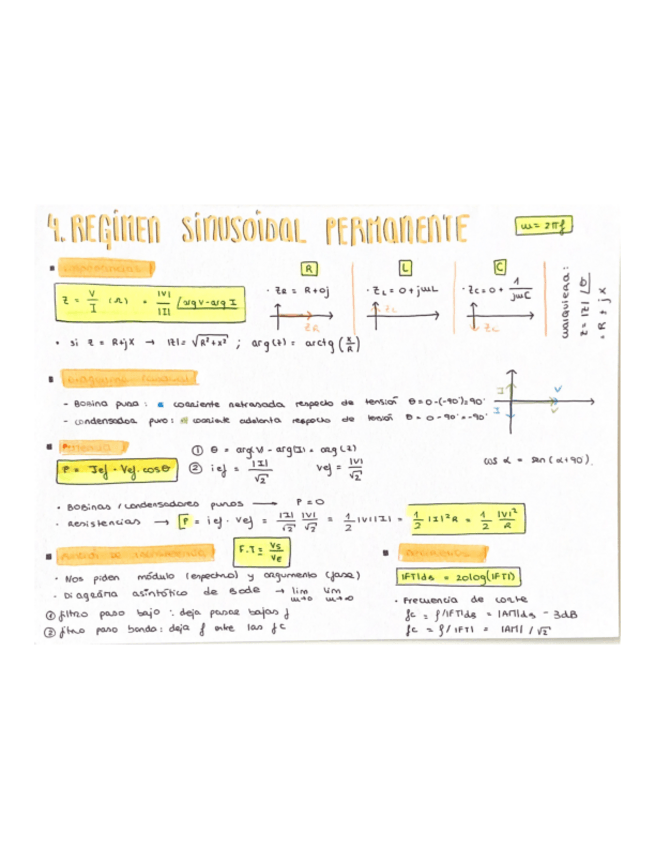 4. REGIMEN SINUSOIDAL PERMANENTE
ω = 2πf
R
L
C
Z = V/I (Ω) = |V|/|I| /arg V - arg I
· ZR = R + 0j
· ZL = 0 + jωL
· ZC = 0 + 1/jωC
ZR
ZL
ZC
cualquiera:
Z = |Z| /θ
= R + jX
· si Z = R+jX → |Z| = √R²+X² ; arg(Z) = arctg (X/R)
- Bobina pura: corriente retrasada respecto de tensión θ = 0-(-90˚)=90˚
- Condensador puro: corriente adelanta respecto de tensión θ = 0 - 90˚ = -90˚
I
V
I
V
cos α = sen (α+90˚).
P = Ief · Vef · cosθ
① θ = arg(V) - arg(I) = arg(Z)
② ief = |I|/√2 vef = |V|/√2
· Bobinas / condensadores puros → P = 0
· Resistencias → P = ief · vef = |I|/√2 |V|/√2 = 1/2 |V||I| = 1/2 |I|² R = 1/2 |V|²/R
F.T = Vs/Ve
· Nos piden módulo (espectro) y argumento (fase)
· Diagrama asintótico de Bode → lim ω→0 lim ω→∞
① filtro paso bajo : deja pasar bajas f
② filtro paso banda : deja f entre las fc
|FT|dB = 20log(|FT|)
· Frecuencia de corte
fc = f/|FT|dB = |AM|dB - 3dB
fc = f/|FT| = |AM| / √2